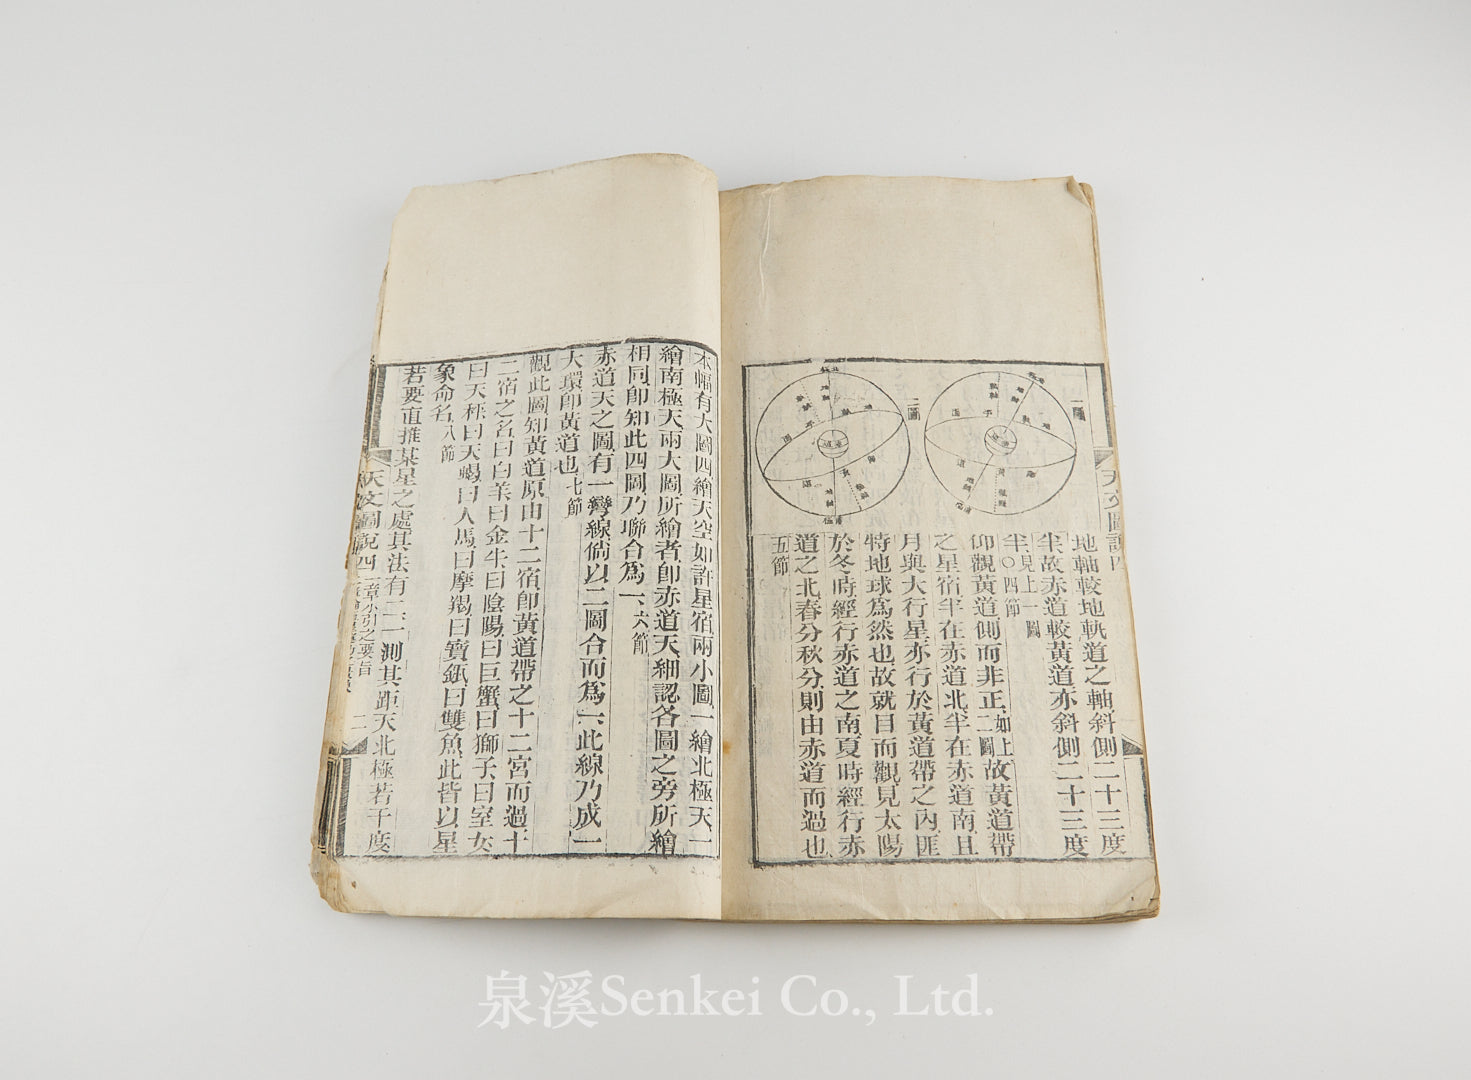 一圖
二圖
地軸較地軌道之軸斜側二十三度
半故赤道較黃道亦斜側二十三度
半見上一圖〇四節
仰觀黃道側而非正如上二圖故黃道帶
之星宿半在赤道北半在赤道南且
月與大行星亦行於黃道帶之內匪
特地球爲然也故就目而觀見太陽
於冬時經行赤道之南夏時經行赤
道之北春分秋分則由赤道而過也
五節
天文圖說四
本幅有大圖四繪天空如許星宿兩小圖一繪北極天一
繪南極天兩大圖所繪者卽赤道天細認各圖之旁所繪
相同卽知此四圖乃聯合爲一六節
赤道天之圖有一彎線倘以二圖合而爲一此線乃成一
大環卽黃道也七節
觀此圖知黃道原由十二宿卽黃道帶之十二宮而過十
二宿之名曰白羊曰金牛曰陰陽曰巨蟹曰獅子曰室女
曰天秤曰天蝎曰人馬曰摩羯曰寶瓶曰雙魚此皆以星
象命名八節
若要直推某星之處其法有二一測其距天北極若干度
天文圖說四
二
泉溪Senkei Co., Ltd.